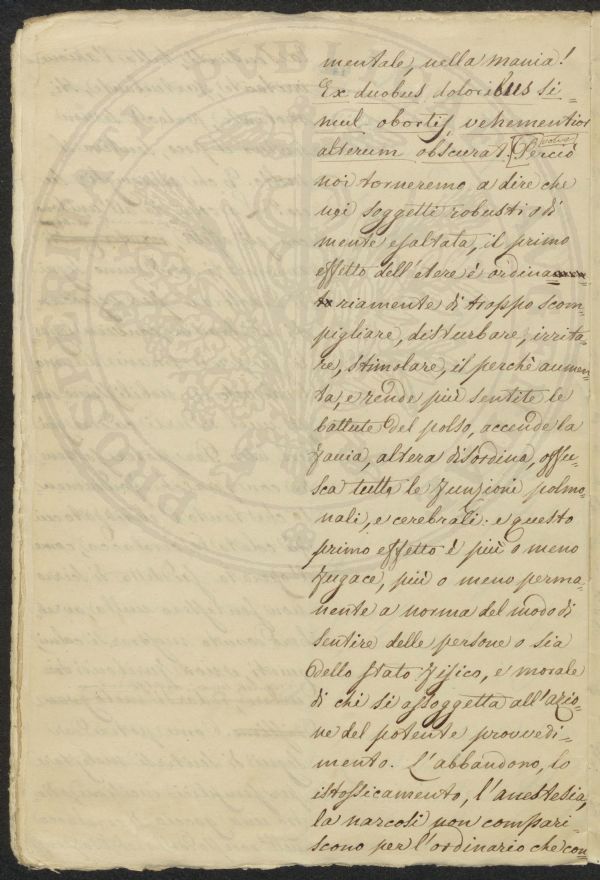 mentale, nella mania!
Ex duobus doloribus si=
mul obortis, vehementior
alterum obscurat. Perciò
noi torneremo a dire che
ne' soggetti robusti o di
mente esaltata, il primo
effetto dell'etere è ordina
riamente di troppo scom=
pigliare, disturbare, irrita=
re, stimolare, il perchè aumen=
ta, e rende più sentite le
battute del polso, accende la
facia, altera disordina, offu=
sca tutte le funzioni polmo=
nali, e cerebrali: e questo
primo effetto è più o meno
fugace, più o meno perma=
nente a norma del modo di
sentire delle persone o sia
dello stato fisico, e morale
di chi si assoggetta all'azio=
ne del potente provvedi=
mento. L'abbandono, lo
istossicamento, l'anestesia,
la narcosi non compari=
scono per l'ordinario che con